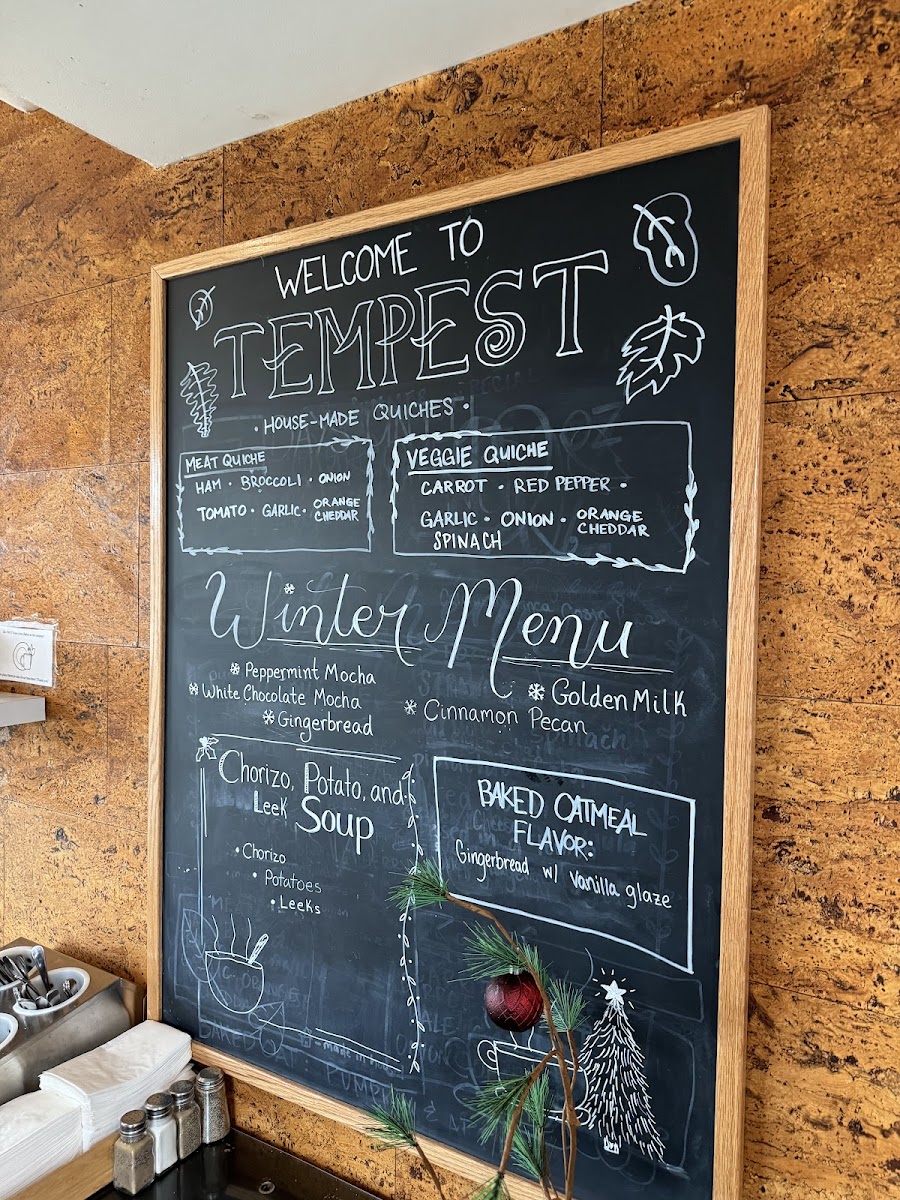 WELCOME TO
TEMPEST
· HOUSE-MADE QUICHES ·
MEAT QUICHE
HAM · BROCCOLI · ONION
TOMATO · GARLIC · ORANGE CHEDDAR
VEGGIE QUICHE
CARROT · RED PEPPER ·
GARLIC · ONION · ORANGE CHEDDAR
SPINACH
Winter Menu
Peppermint Mocha
White Chocolate Mocha
Gingerbread
Golden Milk
Cinnamon Pecan
Chorizo, Potato, and
Leek Soup
• Chorizo
• Potatoes
• Leeks
BAKED OATMEAL
FLAVOR:
Gingerbread w/ vanilla glaze